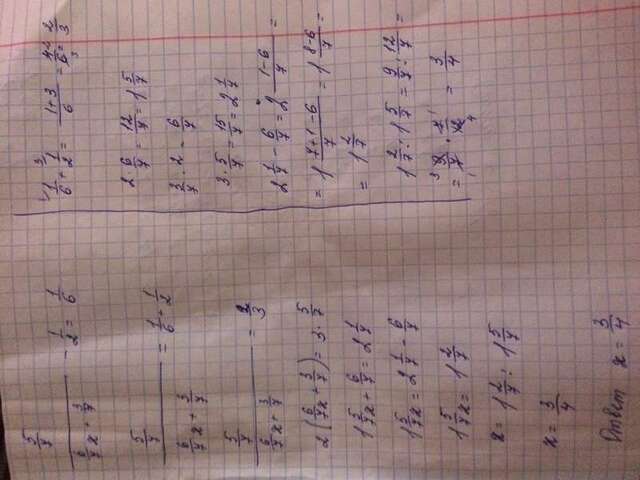 5/7 / (6/7x + 3/7) - 1/2 = 1/6
5/7 / (6/7x + 3/7) = 1/6 + 1/2
5/7 / (6/7x + 3/7) = 2/3
2(6/7x + 3/7) = 3·5/7
1 5/7x + 6/7 = 2 1/7
1 5/7x = 2 1/7 - 6/7
1 5/7x = 1 2/7
x = 1 2/7 : 1 5/7
x = 3/4
Ответ x = 3/4
1/6 + 1/2 = (1+3)/6 = 4/6 = 2/3
2·6/7 = 12/7 = 1 5/7
3/7·2 = 6/7
3·5/7 = 15/7 = 2 1/7
2 1/7 - 6/7 = 2 (1-6)/7 =
= 1 (7+1-6)/7 = 1 (8-6)/7 =
= 1 2/7
1 2/7 : 1 5/7 = 9/7 : 12/7 =
= 9/7 · 7/12 = 3/4